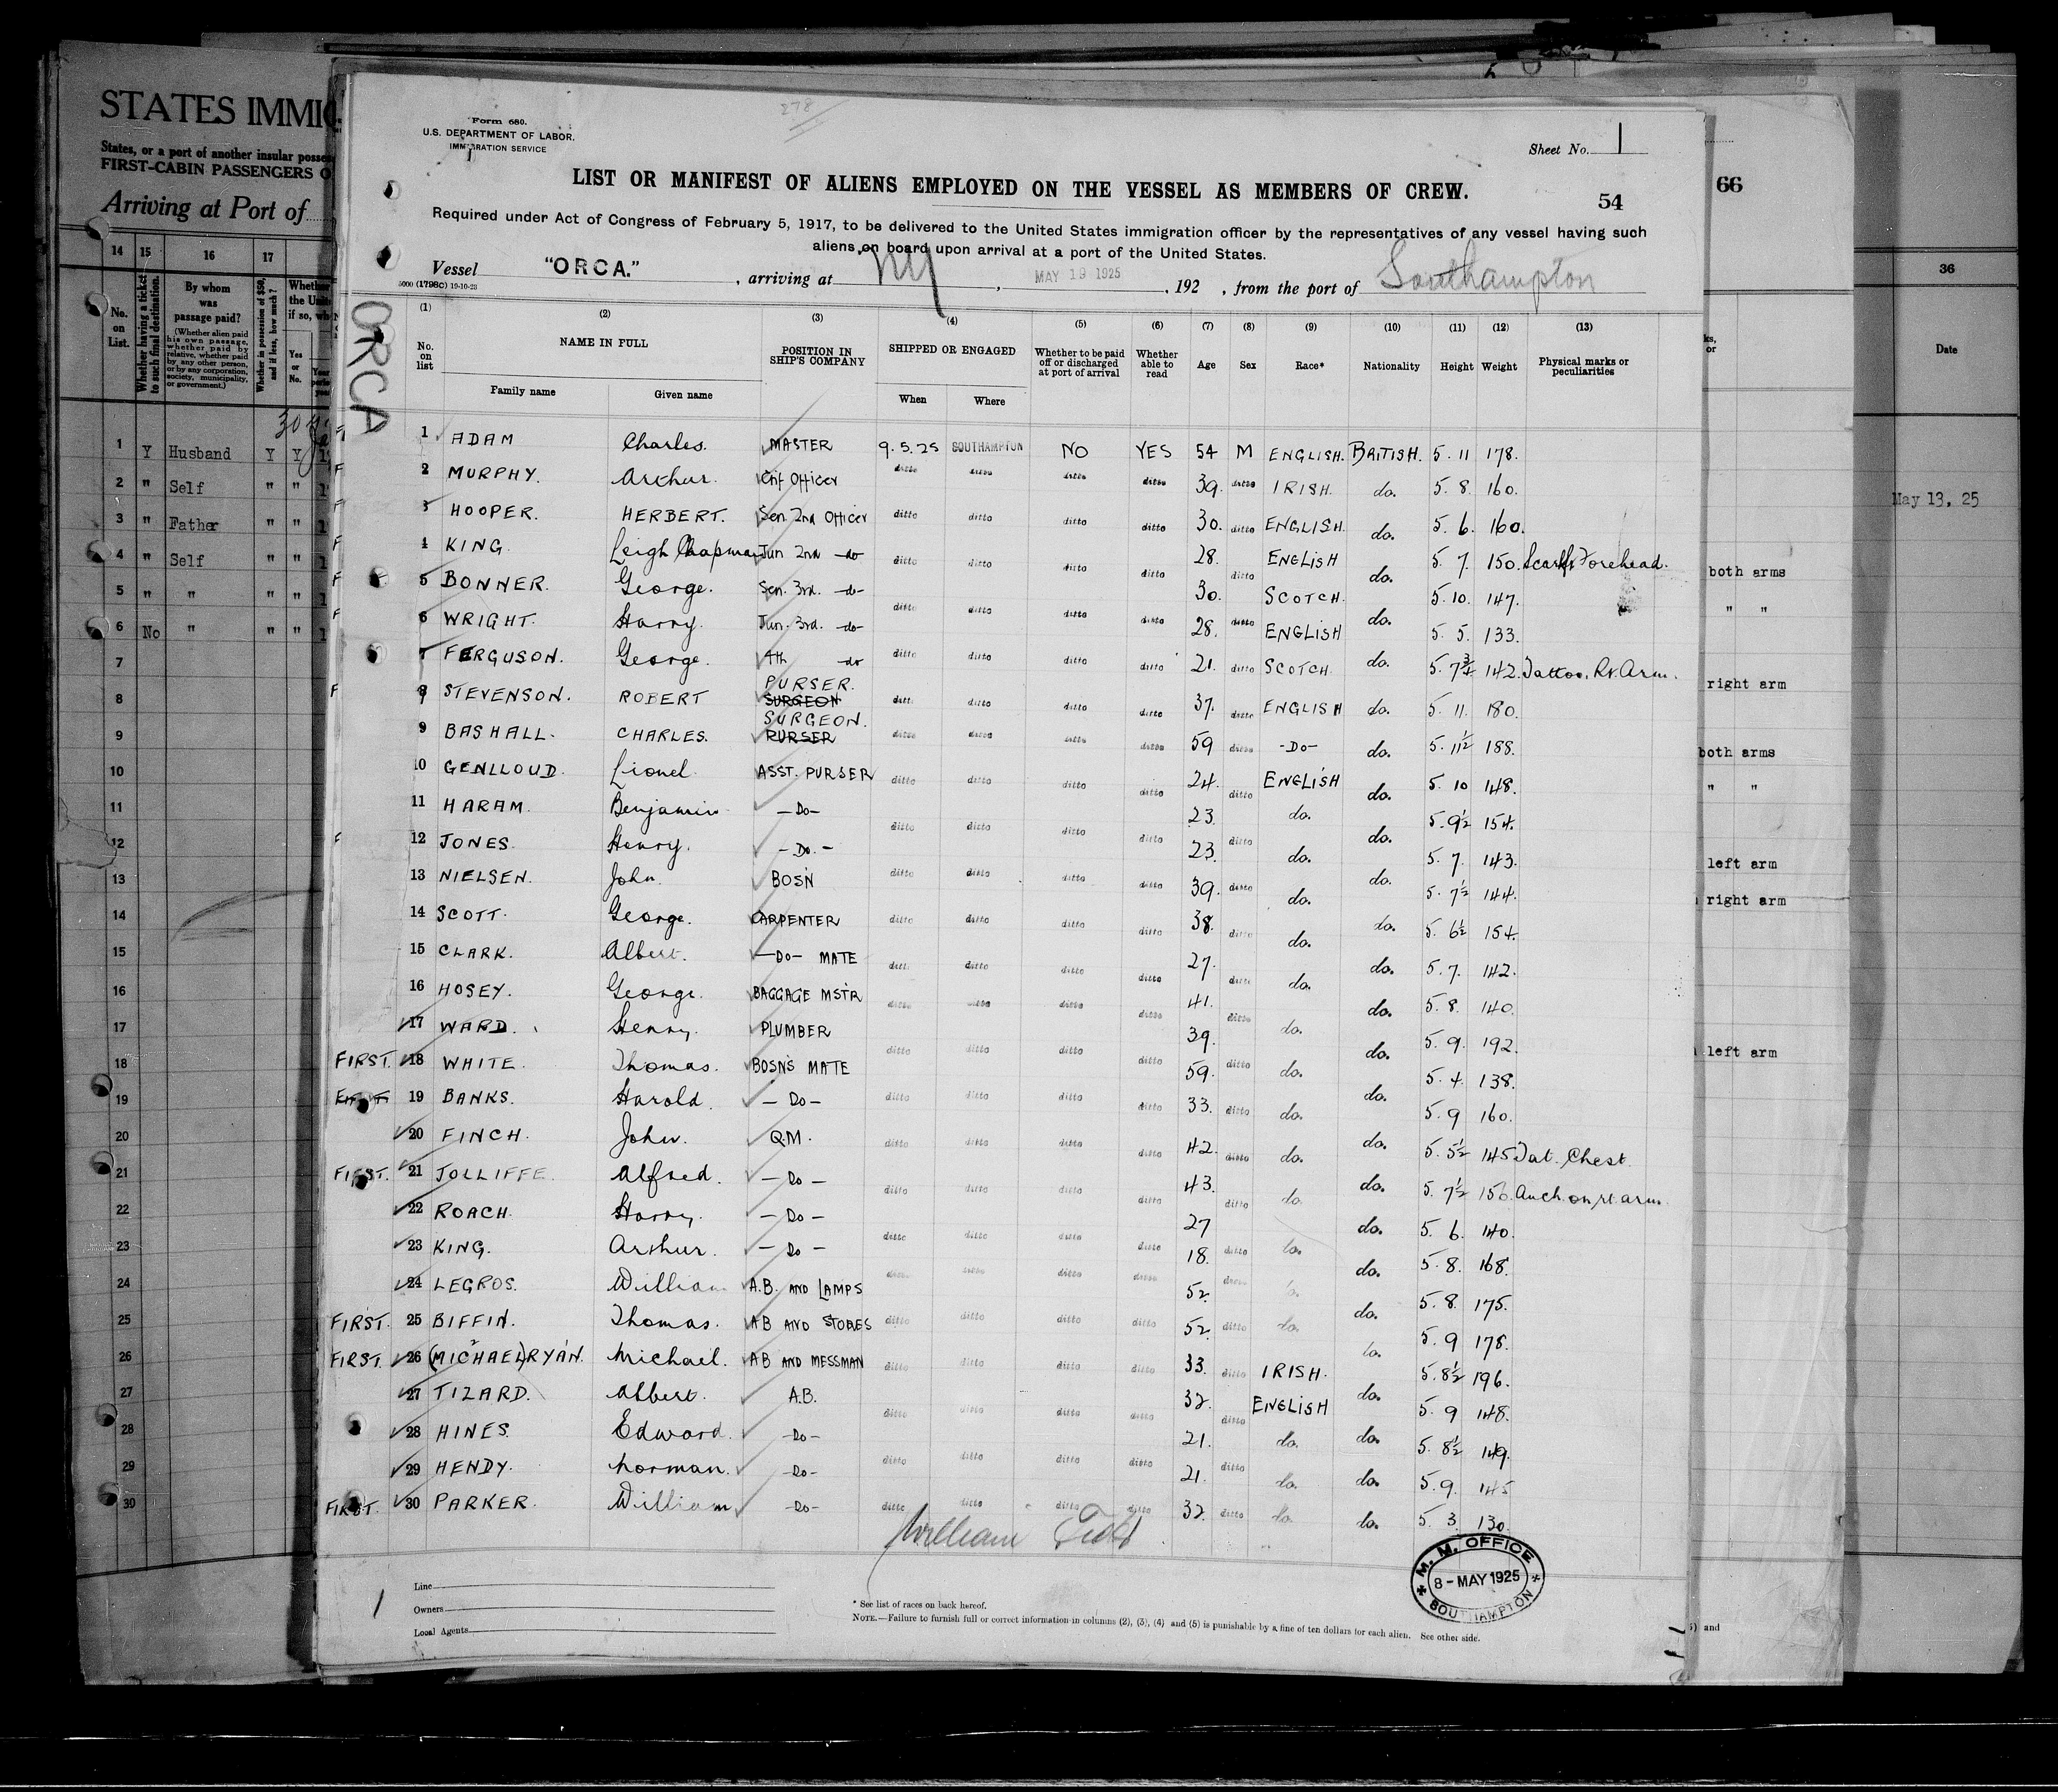 STATES IMMIG
States, or a port of another insular posse
FIRST-CABIN PASSENGERS O
Arriving at Port of
14 15 16 17
No. on List.
Whether having a ticket to such final destination.
By whom was passage paid?
(Whether alien paid his own passage, whether paid by relative, whether paid by any other person, or by any corporation, society, municipality, or government.)
Whether in possession of $50, and if less, how much?
Yes or No.
1 Y Husband Y Y
2 " Self " "
3 " Father " "
4 " Self " "
5 " " " "
6 No " " "
7
8
9
10
11
12
13
14
15
16
17
18
19
20
21
22
23
24
25
26
27
28
29
30
278
Form 680.
U.S. DEPARTMENT OF LABOR,
IMMIGRATION SERVICE
Sheet No. 1
LIST OR MANIFEST OF ALIENS EMPLOYED ON THE VESSEL AS MEMBERS OF CREW.
54
Required under Act of Congress of February 5, 1917, to be delivered to the United States immigration officer by the representatives of any vessel having such
aliens on board upon arrival at a port of the United States.
Vessel "ORCA." , arriving at NY , MAY 19 1925 , 192 , from the port of Southampton
5000 (1798c) 19-10-23
ORCA
(1) (2) (3) (4) (5) (6) (7) (8) (9) (10) (11) (12) (13)
No. on list NAME IN FULL POSITION IN SHIP'S COMPANY SHIPPED OR ENGAGED Whether to be paid off or discharged at port of arrival Whether able to read Age Sex Race* Nationality Height Weight Physical marks or peculiarities
Family name Given name When Where
1 ADAM Charles. MASTER 9.5.25 SOUTHAMPTON NO YES 54 M ENGLISH. BRITISH. 5. 11 178.
F 2 MURPHY. Arthur. Chf Officer ditto ditto ditto ditto 39. ditto IRISH. do. 5. 8. 160.
F 3 HOOPER. HERBERT. Sen 2nd Officer ditto ditto ditto ditto 30. ditto ENGLISH. do. 5. 6. 160.
F 4 KING. Leigh Chapman Jun 2nd -do- ditto ditto ditto ditto 28. ditto ENGLISH do. 5. 7. 150. Scar Forehead.
F 5 BONNER. George. Sen. 3rd. -do- ditto ditto ditto ditto 30. ditto SCOTCH. do. 5. 10. 147.
F 6 WRIGHT. Harry. Jun. 3rd. -do- ditto ditto ditto ditto 28. ditto ENGLISH do. 5. 5. 133.
7 FERGUSON. George. 4th do ditto ditto ditto ditto 21. ditto SCOTCH. do. 5. 7¾ 142. Tattoo. Rt. Arm.
F 8 STEVENSON. ROBERT PURSER. SURGEON ditto ditto ditto ditto 37. ditto ENGLISH do. 5. 11. 180.
9 BASHALL. CHARLES. SURGEON. PURSER ditto ditto ditto ditto 59 ditto -Do- do. 5. 11½ 188.
10 GENLLOUD. Lionel. ASST. PURSER ditto ditto ditto ditto 24. ditto ENGLISH do. 5. 10 148.
11 HARAM. Benjamin -Do- ditto ditto ditto ditto 23. ditto do. do. 5. 9½ 154.
F 12 JONES. Henry. -Do.- ditto ditto ditto ditto 23. ditto do. do. 5. 7. 143.
13 NIELSEN. John. BOSN ditto ditto ditto ditto 39. ditto do. do. 5. 7½ 144.
14 SCOTT. George. CARPENTER ditto ditto ditto ditto 38. ditto do. do. 5. 6½ 154.
15 CLARK. Albert. -Do- MATE ditto ditto ditto ditto 27. ditto do. do. 5. 7. 142.
16 HOSEY. George. BAGGAGE MSTR ditto ditto ditto ditto 41. ditto do. do. 5. 8. 140.
17 WARD. Henry. PLUMBER ditto ditto ditto ditto 39. do. do. 5. 9. 192.
FIRST. 18 WHITE. Thomas. BOSNS MATE ditto ditto ditto ditto 59. ditto do. do. 5. 4. 138.
FIRST 19 BANKS. Harold. -Do- ditto ditto ditto ditto 33. ditto do. do. 5. 9 160.
20 FINCH. John. Q.M. ditto ditto ditto ditto 42. ditto do. do. 5. 5½ 145 Tat. Chest.
FIRST. 21 JOLLIFFE. Alfred. -Do- ditto ditto ditto ditto 43. ditto do. do. 5. 7½ 150. Anch on rt arm.
22 ROACH. Harry. -Do- ditto ditto ditto ditto 27 do. do. 5. 6. 140.
23 KING. Arthur. -Do- ditto ditto ditto ditto 18. ditto do. do. 5. 8. 168.
24 LEGROS. William A.B. AND LAMPS ditto ditto ditto ditto 52. ditto do. do. 5. 8. 175.
FIRST. 25 BIFFIN. Thomas. AB AND STORES ditto ditto ditto ditto 52. ditto do. do. 5. 9 178.
FIRST. 26 (MICHAEL) RYAN. Michael. AB AND MESSMAN ditto ditto ditto ditto 33. ditto IRISH. do. 5. 8½ 196.
27 TIZARD. Albert. A.B. ditto ditto ditto ditto 32. ditto ENGLISH do. 5. 9 148.
28 HINES. Edward. -Do- ditto ditto ditto ditto 21. ditto do. do. 5. 8½ 149.
29 HENDY. Norman. -Do- ditto ditto ditto ditto 21. ditto do. do. 5. 9. 145
FIRST. 30 PARKER. William -Do- ditto ditto ditto ditto 32. ditto do. do. 5. 3. 130.
William
M. M. OFFICE
8-MAY 1925
SOUTHAMPTON
Line
Owners
Local Agents
* See list of races on back hereof.
NOTE.—Failure to furnish full or correct information in columns (2), (3), (4) and (5) is punishable by a fine of ten dollars for each alien. See other side.
66
36
Date
May 13, 25
both arms
" "
right arm
both arms
" "
left arm
right arm
left arm
and